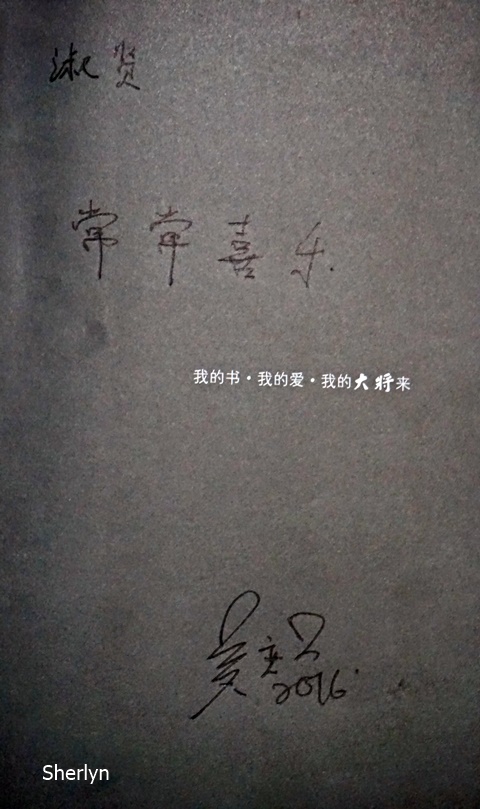 淑贤
常常喜乐.
我的书·我的爱·我的大将来
2016
Sherlyn